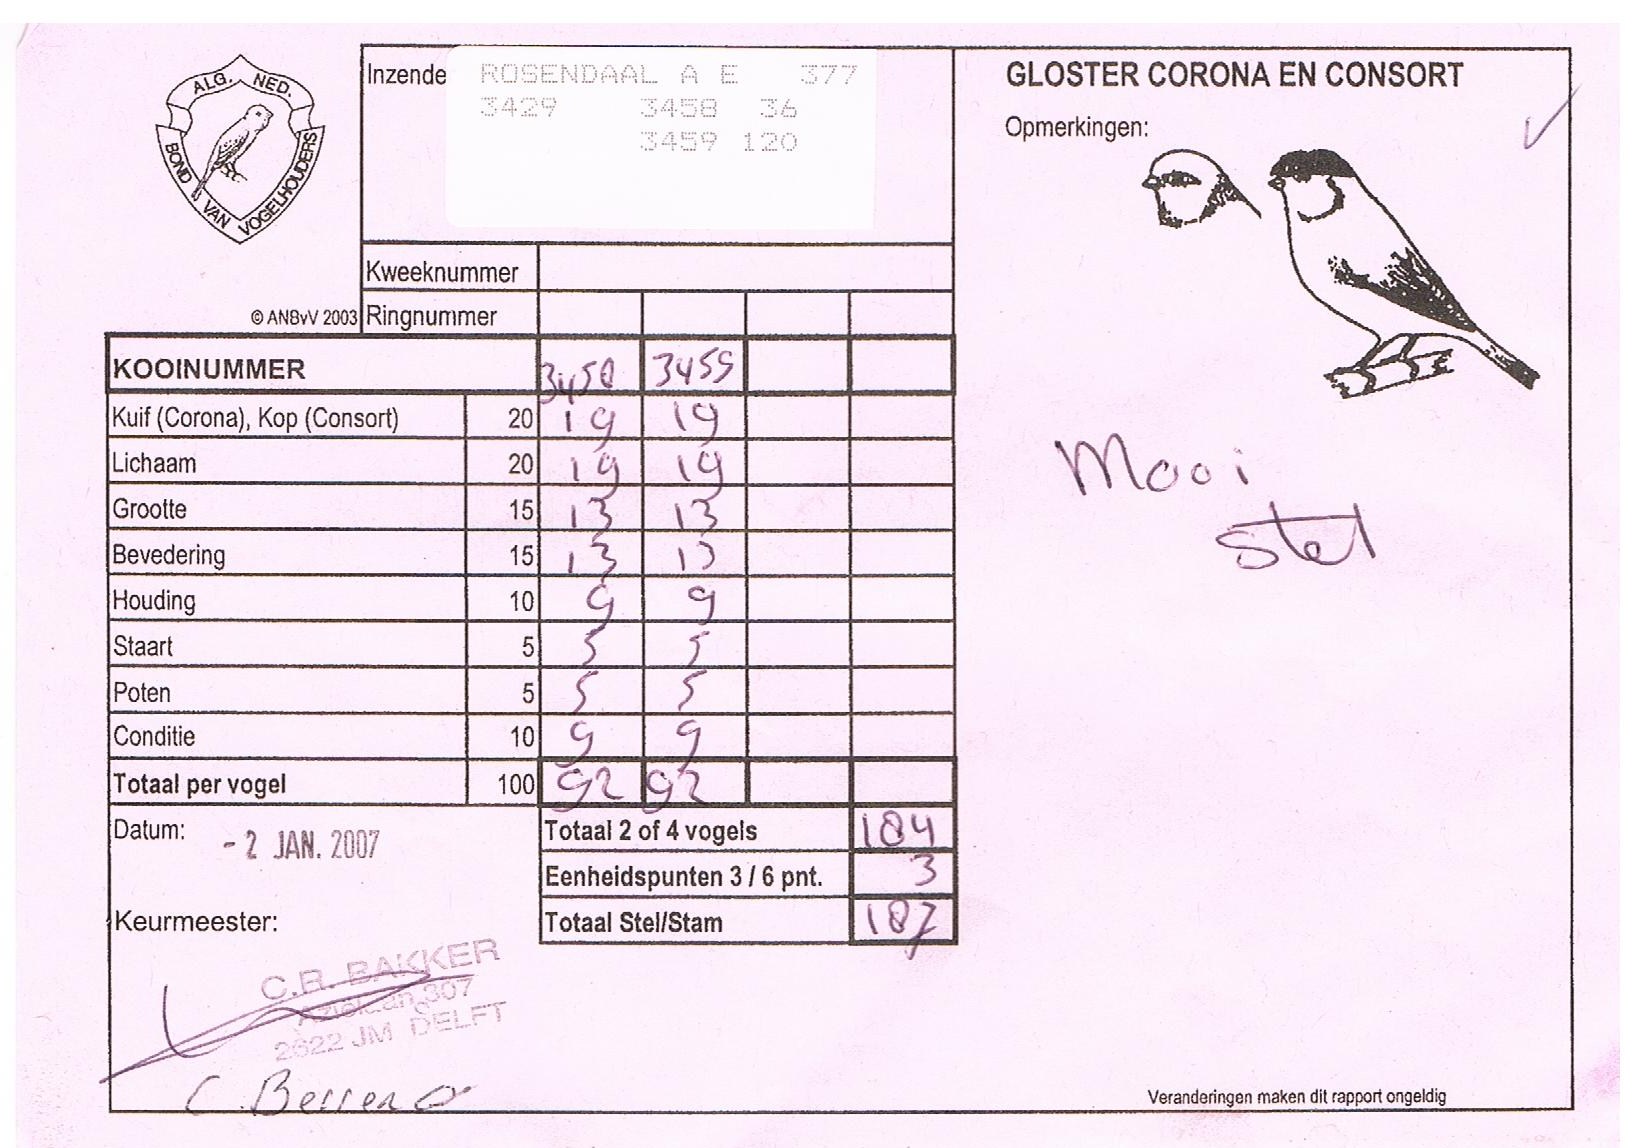 ALG. NED.
BOND VAN VOGELHOUDERS
Inzende
ROSENDAAL A E 377
3429 3458 36
3459 120
Kweeknummer
© ANBvV 2003 Ringnummer
KOOINUMMER 3458 3459
Kuif (Corona), Kop (Consort) 20 19 19
Lichaam 20 19 19
Grootte 15 13 13
Bevedering 15 13 13
Houding 10 9 9
Staart 5 5 5
Poten 5 5 5
Conditie 10 9 9
Totaal per vogel 100 92 92
Datum: - 2 JAN. 2007
Totaal 2 of 4 vogels 184
Eenheidspunten 3 / 6 pnt. 3
Totaal Stel/Stam 187
Keurmeester:
C.R. BAKKER
307
2622 JM DELFT
GLOSTER CORONA EN CONSORT
Opmerkingen:
Mooi
stel
Veranderingen maken dit rapport ongeldig